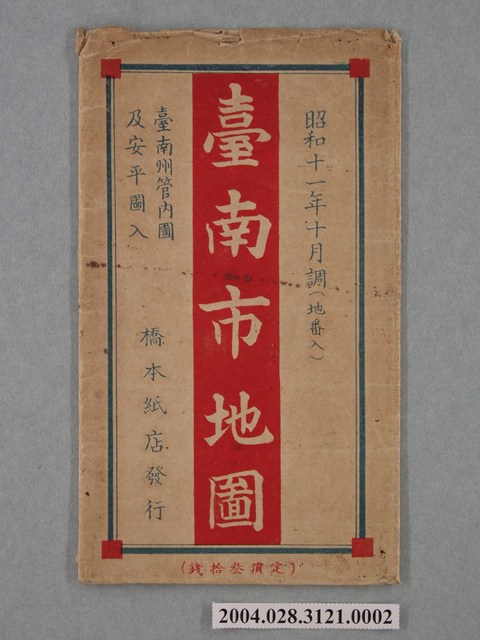 昭和十一年十月調(地番入)
臺南市地圖
臺南州管内圖
及安平圖入
橋本紙店發行
(定價叄拾錢)
2004.028.3121.0002